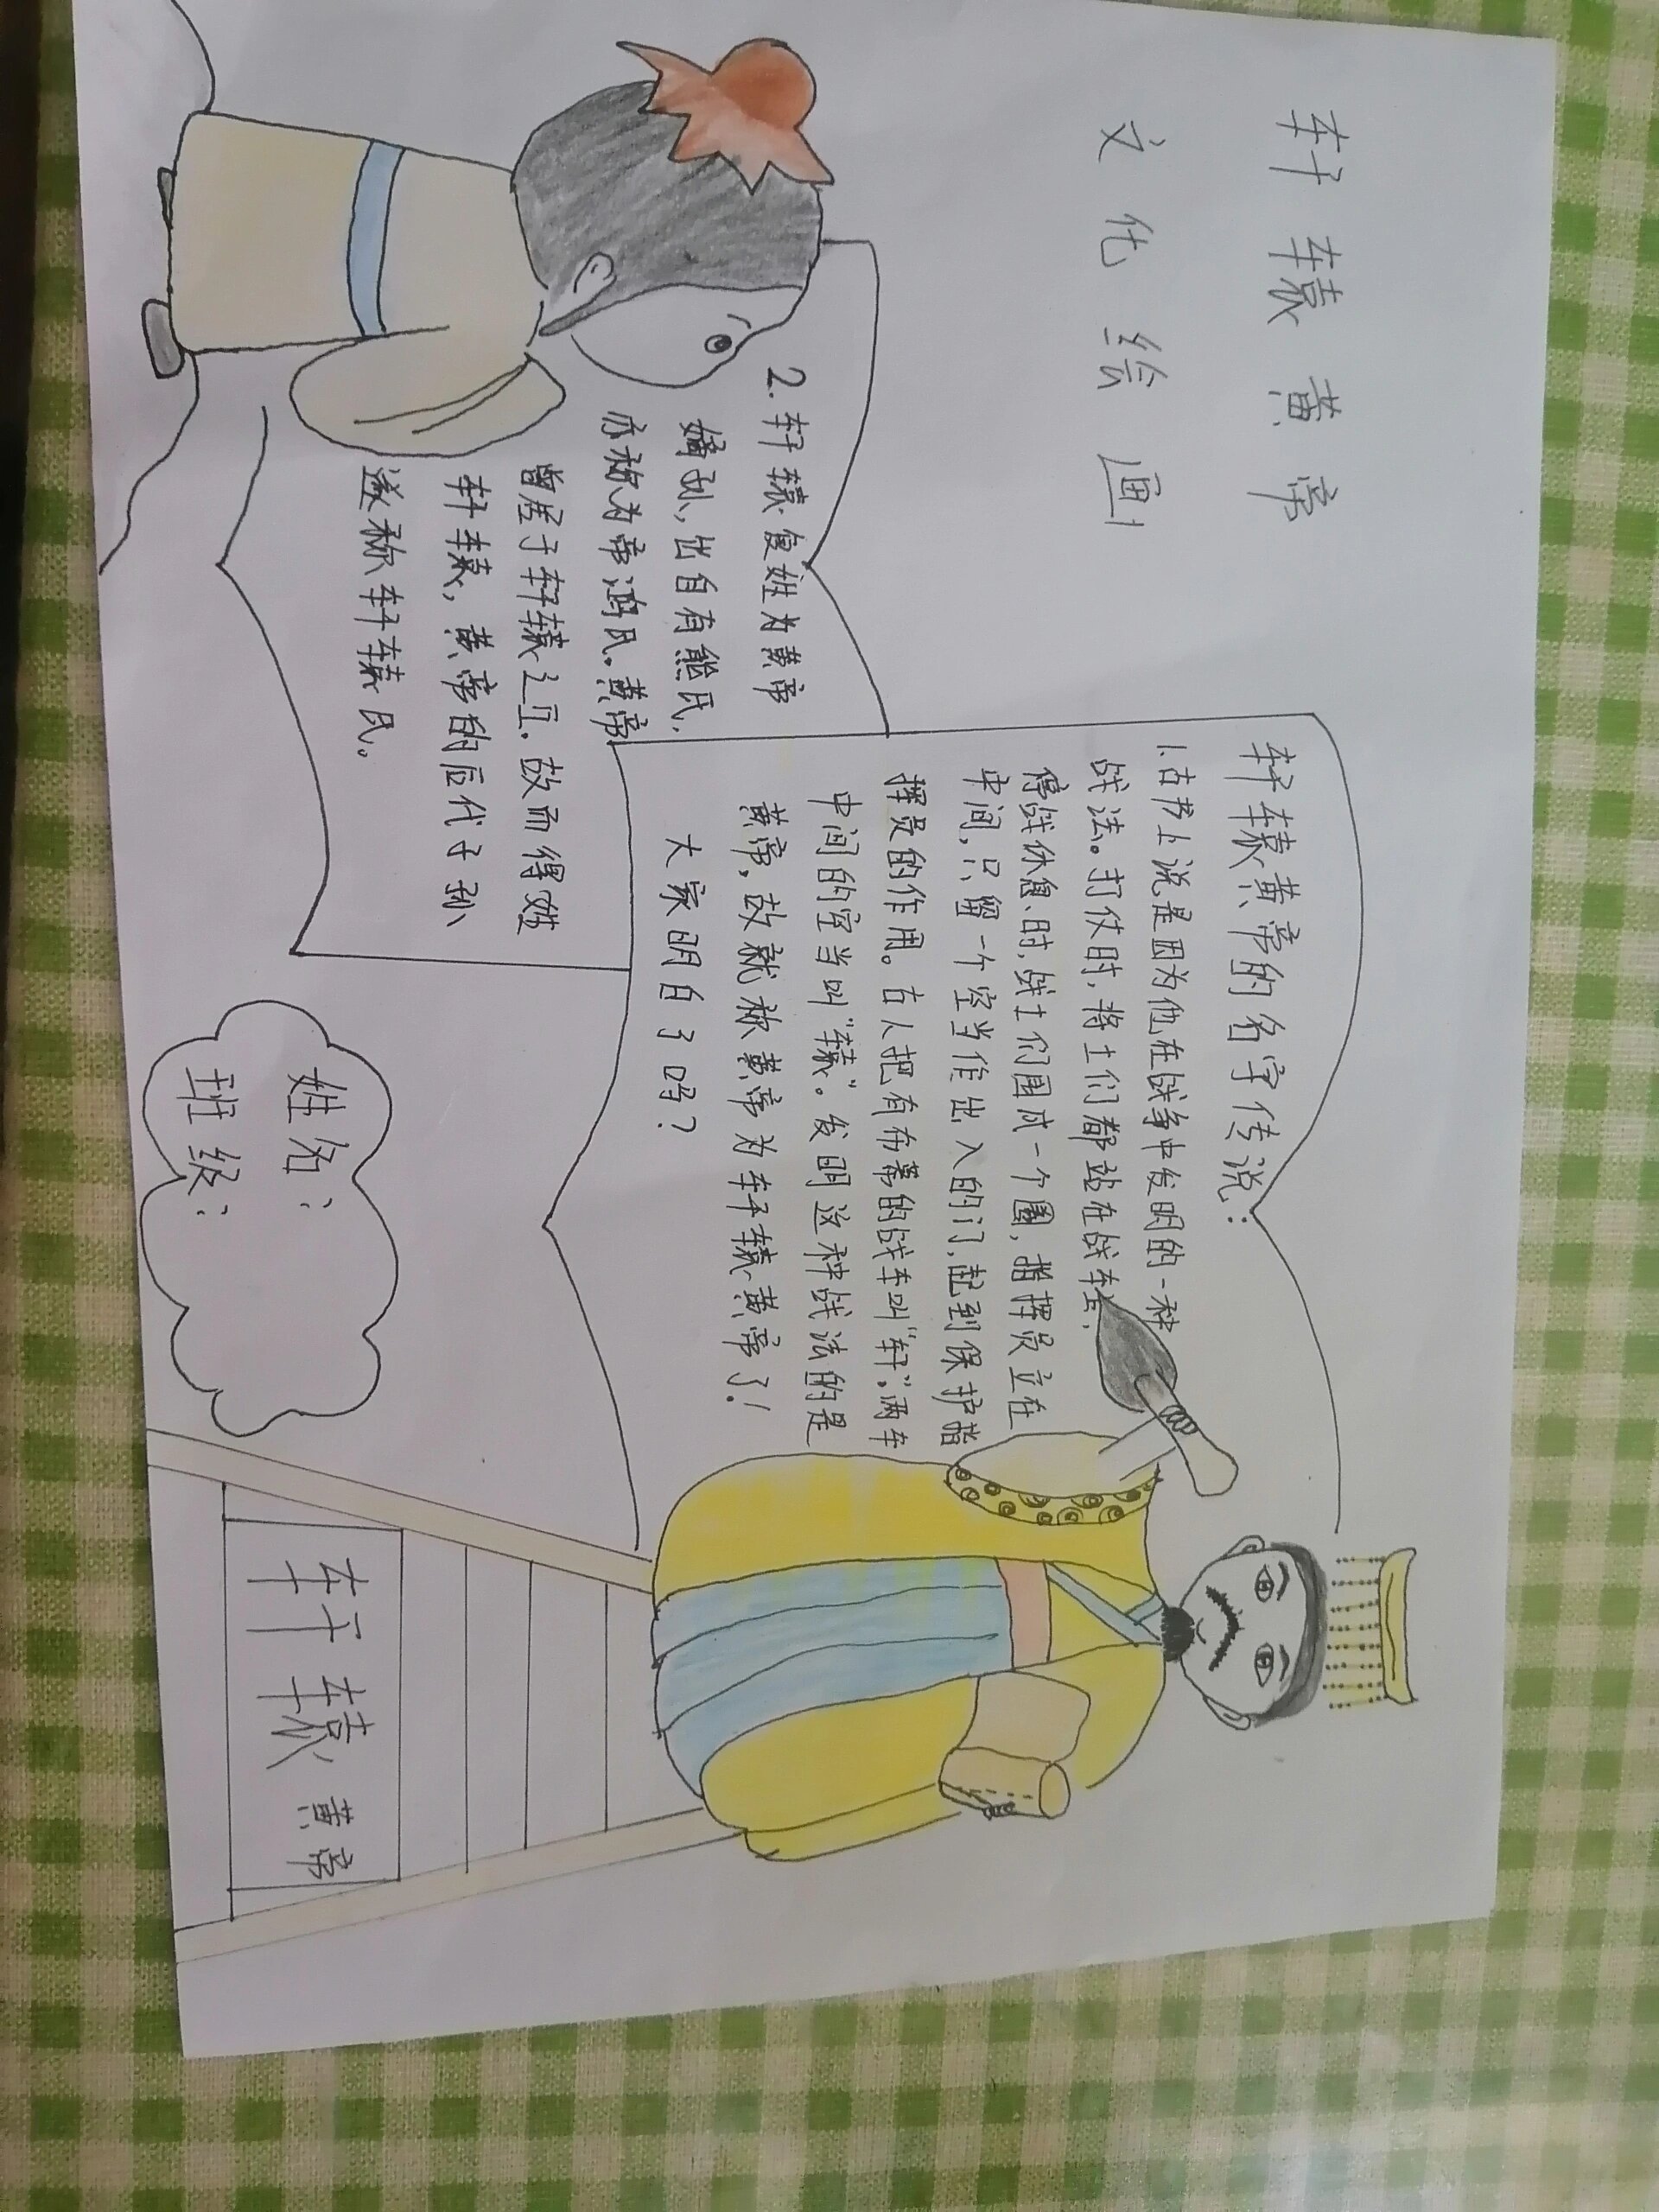 轩辕黄帝
文化绘画
轩辕黄帝的名字传说:
1.古书上说是因为他在战争中发明的一种
战法。打仗时,将士们都站在战车上,
停战休息时,战士们围成一个圈,指挥员立在
中间,只留一个空当作出入的门,起到保护指
挥员的作用。古人把有布幕的战车叫“轩”,两车
中间的空当叫“辕”。发明这种战法的是
黄帝,故就称黄帝为轩辕黄帝了!
大家明白了吗?
2.轩辕复姓为黄帝
嫡孙,出自有熊氏,
亦称为帝鸿氏.黄帝
曾居于轩辕之丘.故而得姓
轩辕,黄帝的应代子孙
遂称轩辕氏。
姓名:
班级:
轩辕黄帝